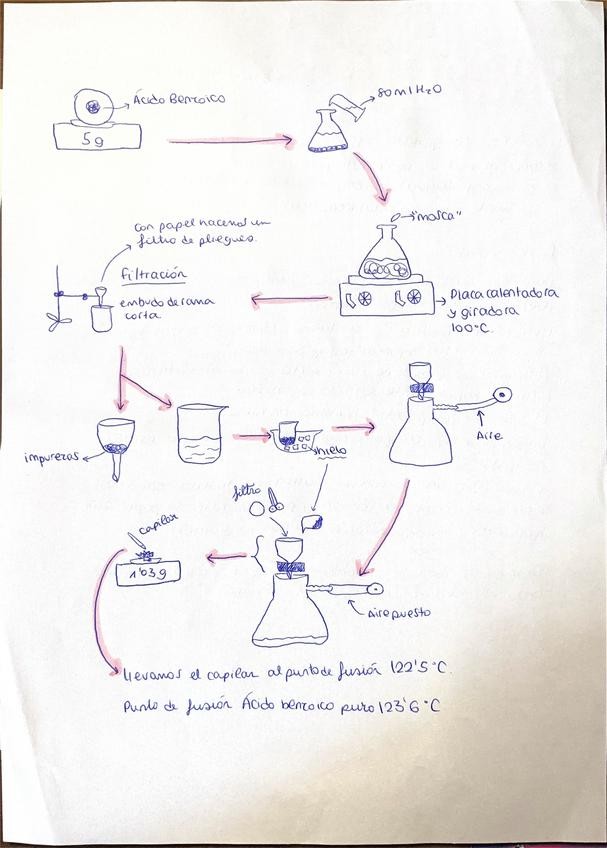 Ácido Benzoico
5g
80ml H₂O
"mosca"
con papel hacemos un
filtro de pliegues.
Filtración
embudo de rama
corta
Placa calentadora
y giradora
100°C.
impurezas
hielo
Aire
filtro
capilar
1'63g
Aire puesto
llevamos el capilar al punto de fusión 122'5°C.
Punto de fusión Ácido benzoico puro 123'6°C